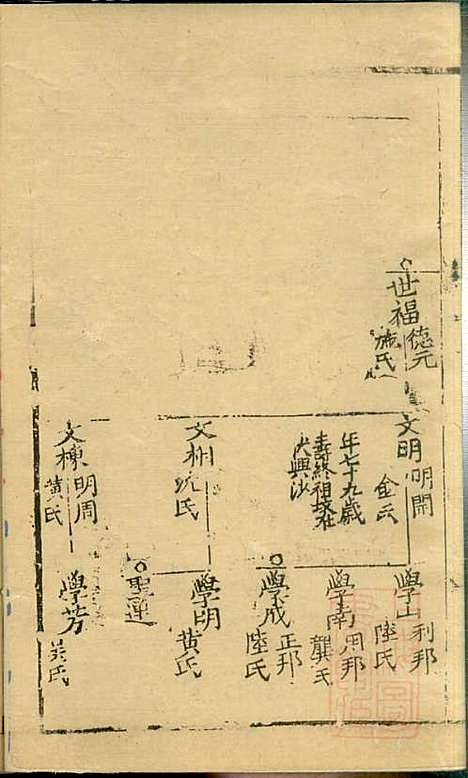 世福 德元
施氏
文明 明開
金氏
年七十九歲
壽終祖塚在
大興沙
文栁 沈氏
文棟 明周
黄氏
學山 利邦
陸氏
學南 用邦
龔氏
學成 正邦
陸氏
學明
黄氏
聖蓮
學芳
吴氏